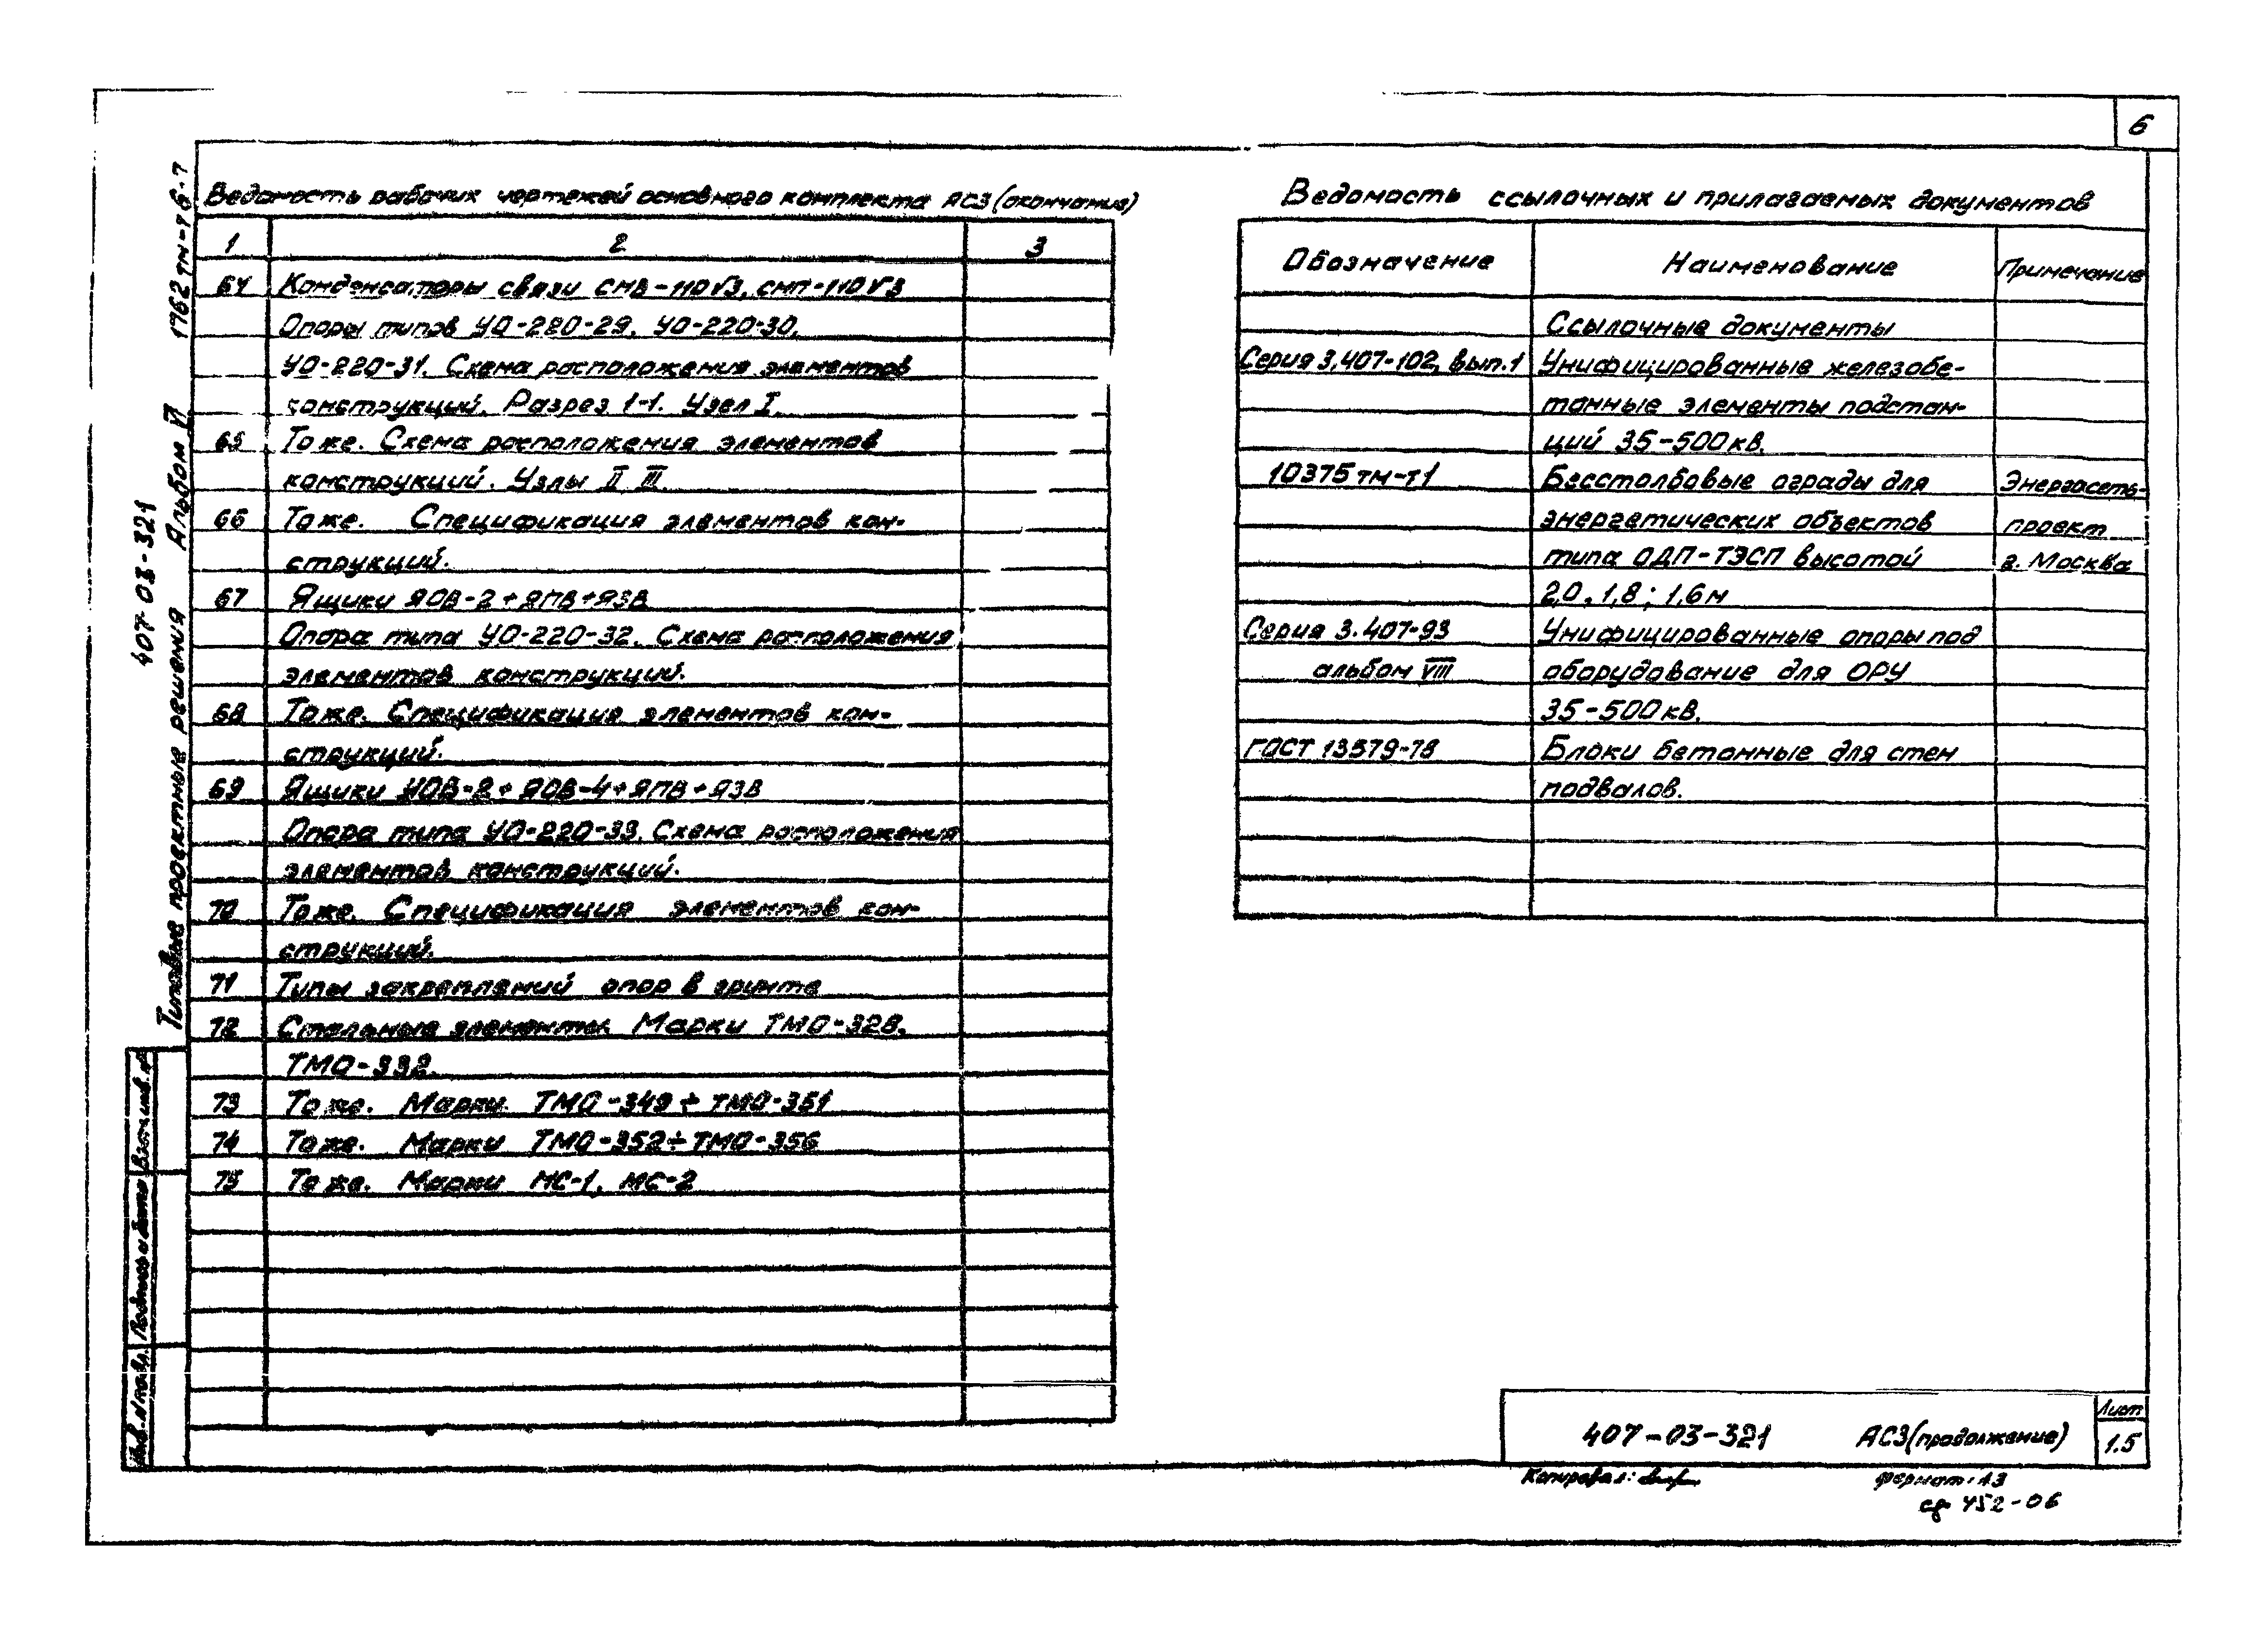 6
407-03-321
Типовые проектные решения Альбом VI 1762тм-т6-7
Ведомость рабочих чертежей основного комплекта АС3 (окончание)
1 2 3
64 Конденсаторы связи СМВ-110√3, СМП-110√3
Опоры типов УО-220-29, УО-220-30,
УО-220-31. Схема расположения элементов
конструкций. Разрез 1-1. Узел I.
65 То же. Схема расположения элементов
конструкций. Узлы II III.
66 То же. Спецификация элементов кон-
струкций.
67 Ящики ЯОВ-2+ЯПВ+ЯЗВ
Опора типа УО-220-32. Схема расположения
элементов конструкций.
68 То же. Спецификация элементов кон-
струкций.
69 Ящики ЯОВ-2+ЯОВ-4+ЯПВ+ЯЗВ
Опора типа УО-220-33. Схема расположения
элементов конструкций.
70 То же. Спецификация элементов кон-
струкций.
71 Типы закреплений опор в грунте
72 Стальные элементы. Марки ТМО-328,
ТМО-332.
73 То же. Марки ТМО-349÷ТМО-351
74 То же. Марки ТМО-352÷ТМО-356
75 То же. Марки МС-1, МС-2
Ведомость ссылочных и прилагаемых документов
Обозначение Наименование Примечание
Ссылочные документы
Серия 3.407-102, вып.1 Унифицированные железобе-
тонные элементы подстан-
ций 35-500кв.
10375тм-т1 Бесстолбовые ограды для Энергосеть-
энергетических объектов проект
типа ОДП-ТЭСП высотой г. Москва
2,0, 1,8; 1,6м
Серия 3.407-93 Унифицированные опоры под
альбом VIII оборудование для ОРУ
35-500кв.
ГОСТ 13579-78 Блоки бетонные для стен
подвалов.
Инв.№подл. Подпись и дата Взам.инв.№
407-03-321 АС3 (продолжение) Лист
1.5
Копировал: формат: А3
сф 452-06